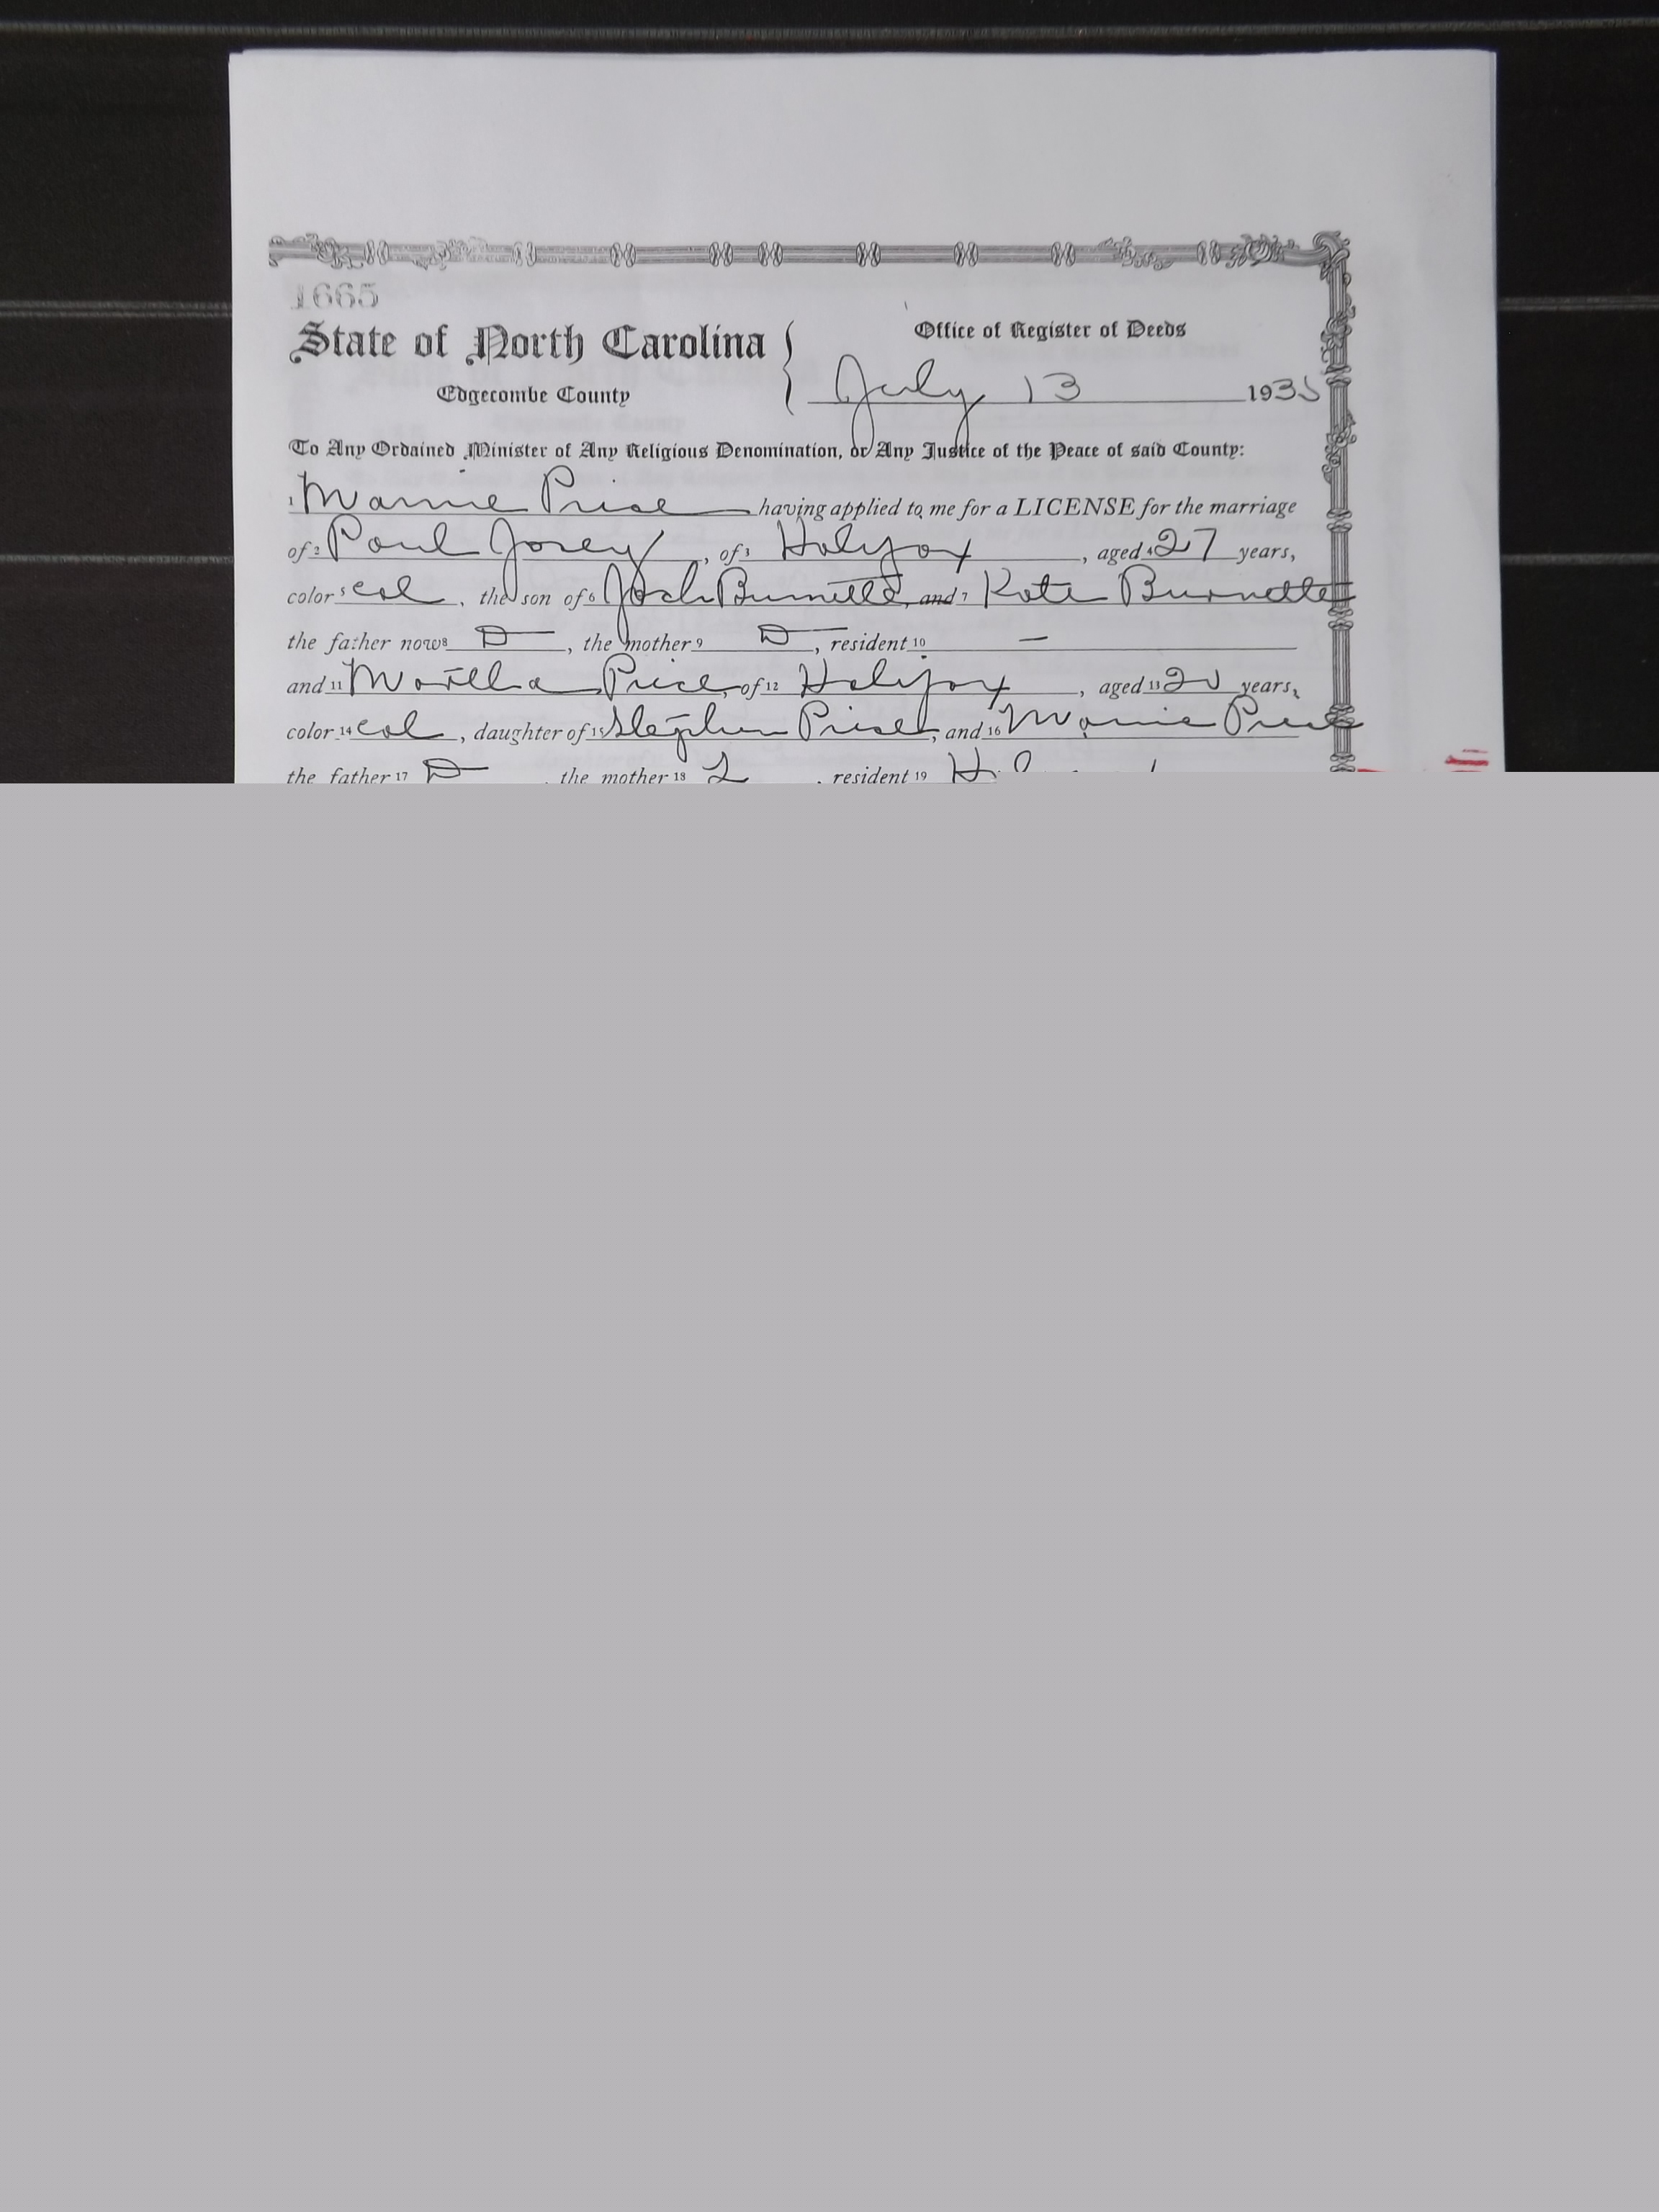 1665
State of North Carolina
Office of Register of Deeds
Edgecombe County
July 13 1935
To Any Ordained Minister of Any Religious Denomination, or Any Justice of the Peace of said County:
1 Mamie Price having applied to me for a LICENSE for the marriage
of 2 Paul Josey, of 3 Halifax, aged 4 27 years,
color 5 col, the son of 6 Josh Burnette, and 7 Kate Burnette
the father now 8 D, the mother 9 D, resident 10 —
and 11 Martha Price, of 12 Halifax, aged 13 20 years,
color 14 col, daughter of 15 Stephen Price, and 16 Mamie Price
the father 17 D, the mother 18 L, resident 19